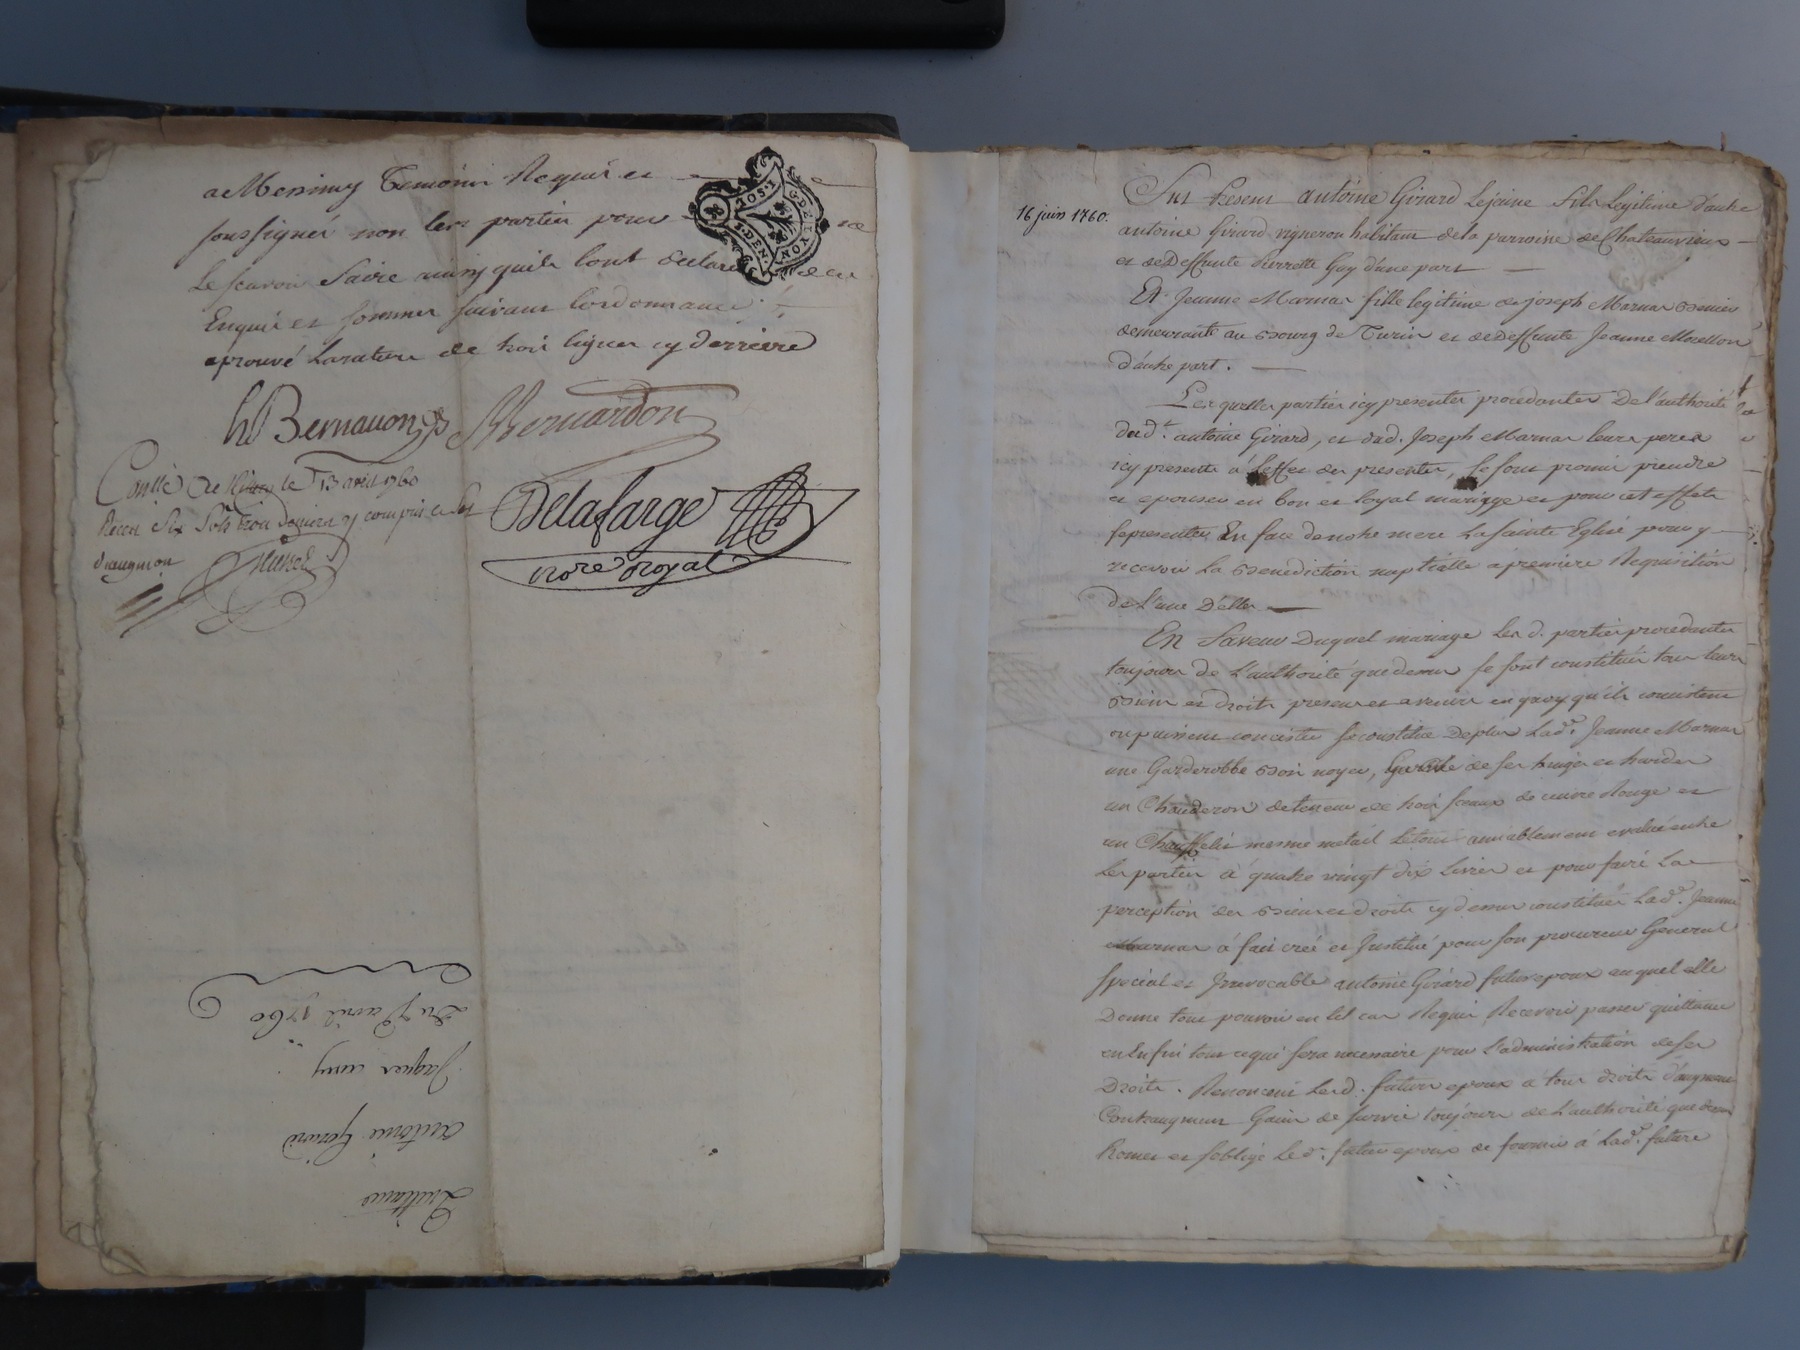 a Messimy Temoins Requis et
soussignés non les parties pour
Le scavoir faire ainsy quils l'ont declaré de ce
Enquis et sommes suivant lordonnance
aprouvé La rature de trois lignes cy derriere
Bernardon
Conllé le 13 avril 1760
Receu Six Sols trois deniers y compris
d'augmon
Delafarge
nore royal
GDE LYON
2 SOLS
Quittance
antoine Girard
Jaques
Du 7 avril 1760
16 juin 1760.
Sut Present antoine Girard Lejeune fils Legitime d'autre
antoine Girard vigneron habitant de la parroisse de Chateauvieux
et de Deffunte Pierrette Guy d'une part
Et Jeanne Marnas fille legitime de joseph Marnas
demeurante au Bourg de Turin et de Deffunte Jeanne Morellon
D'autre part.
Lesquelles parties icy presentes procedantes De l'authorité
dud.t antoine Girard, et dud. Joseph Marnas leurs peres
icy presents à L'effet des presentes, se sont promis prendre
et epouser en bon et loyal mariage et pour cet effet
se presenter En face de notre mere La sainte Eglise pour y
recevoir La Benediction nuptialle a premiere Requisition
de L'une D'elles
En faveur Duquel mariage Les d. parties procedantes
toujours de L'authorité que dessus se sont constitués tous leurs
Biens et droits presents et avenir en quoy qu'ils consistent
ou puissent concister se constitue Deplus Lad.e Jeanne Marnas
une Garderobbe Bois noyer, Garnie de ses linges et hardes
un Chauderon de teneur de trois sceaux de cuivre Rouge et
un mesme metail Letout amiablement evalué entre
Les parties à quatre vingt dix Livres et pour faire La
perception des Biens et droits cy dessus constitués Lad.e Jeanne
Marnas à fait creé et Institué pour son procureur General
special et Irrevocable antoine Girard futur epoux auquel elle
Donne tous pouvoirs en tel cas Requis Recevoir passer quittance
en Enfin tout ce qui sera necessaire pour L'administration de ses
Droits. Renoncent Lesd. futurs epoux a tous droits d'augment
Contraugment Gains de survie toujours de L'authorité que dessus
Promet et s'oblige Le d. futur epoux de fournir à Lad.e future